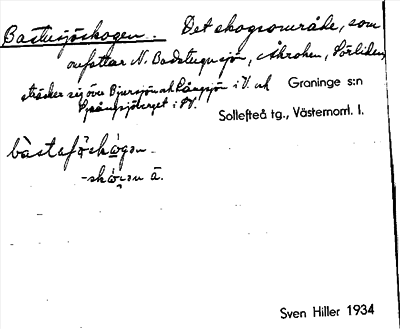 Bastusjöskogen. Det skogsområde, som
omfattar N. Badstugusjön, Åkroken, Sörliden,
sträcker sig över Bjursjön och Långsjön i V. och
Spångsjöberget i SV.
Graninge s:n
Sollefteå tg., Västernorrl. l.
bàstafǫ̈skó̀gən.
-skó̀gən ä.
Sven Hiller 1934